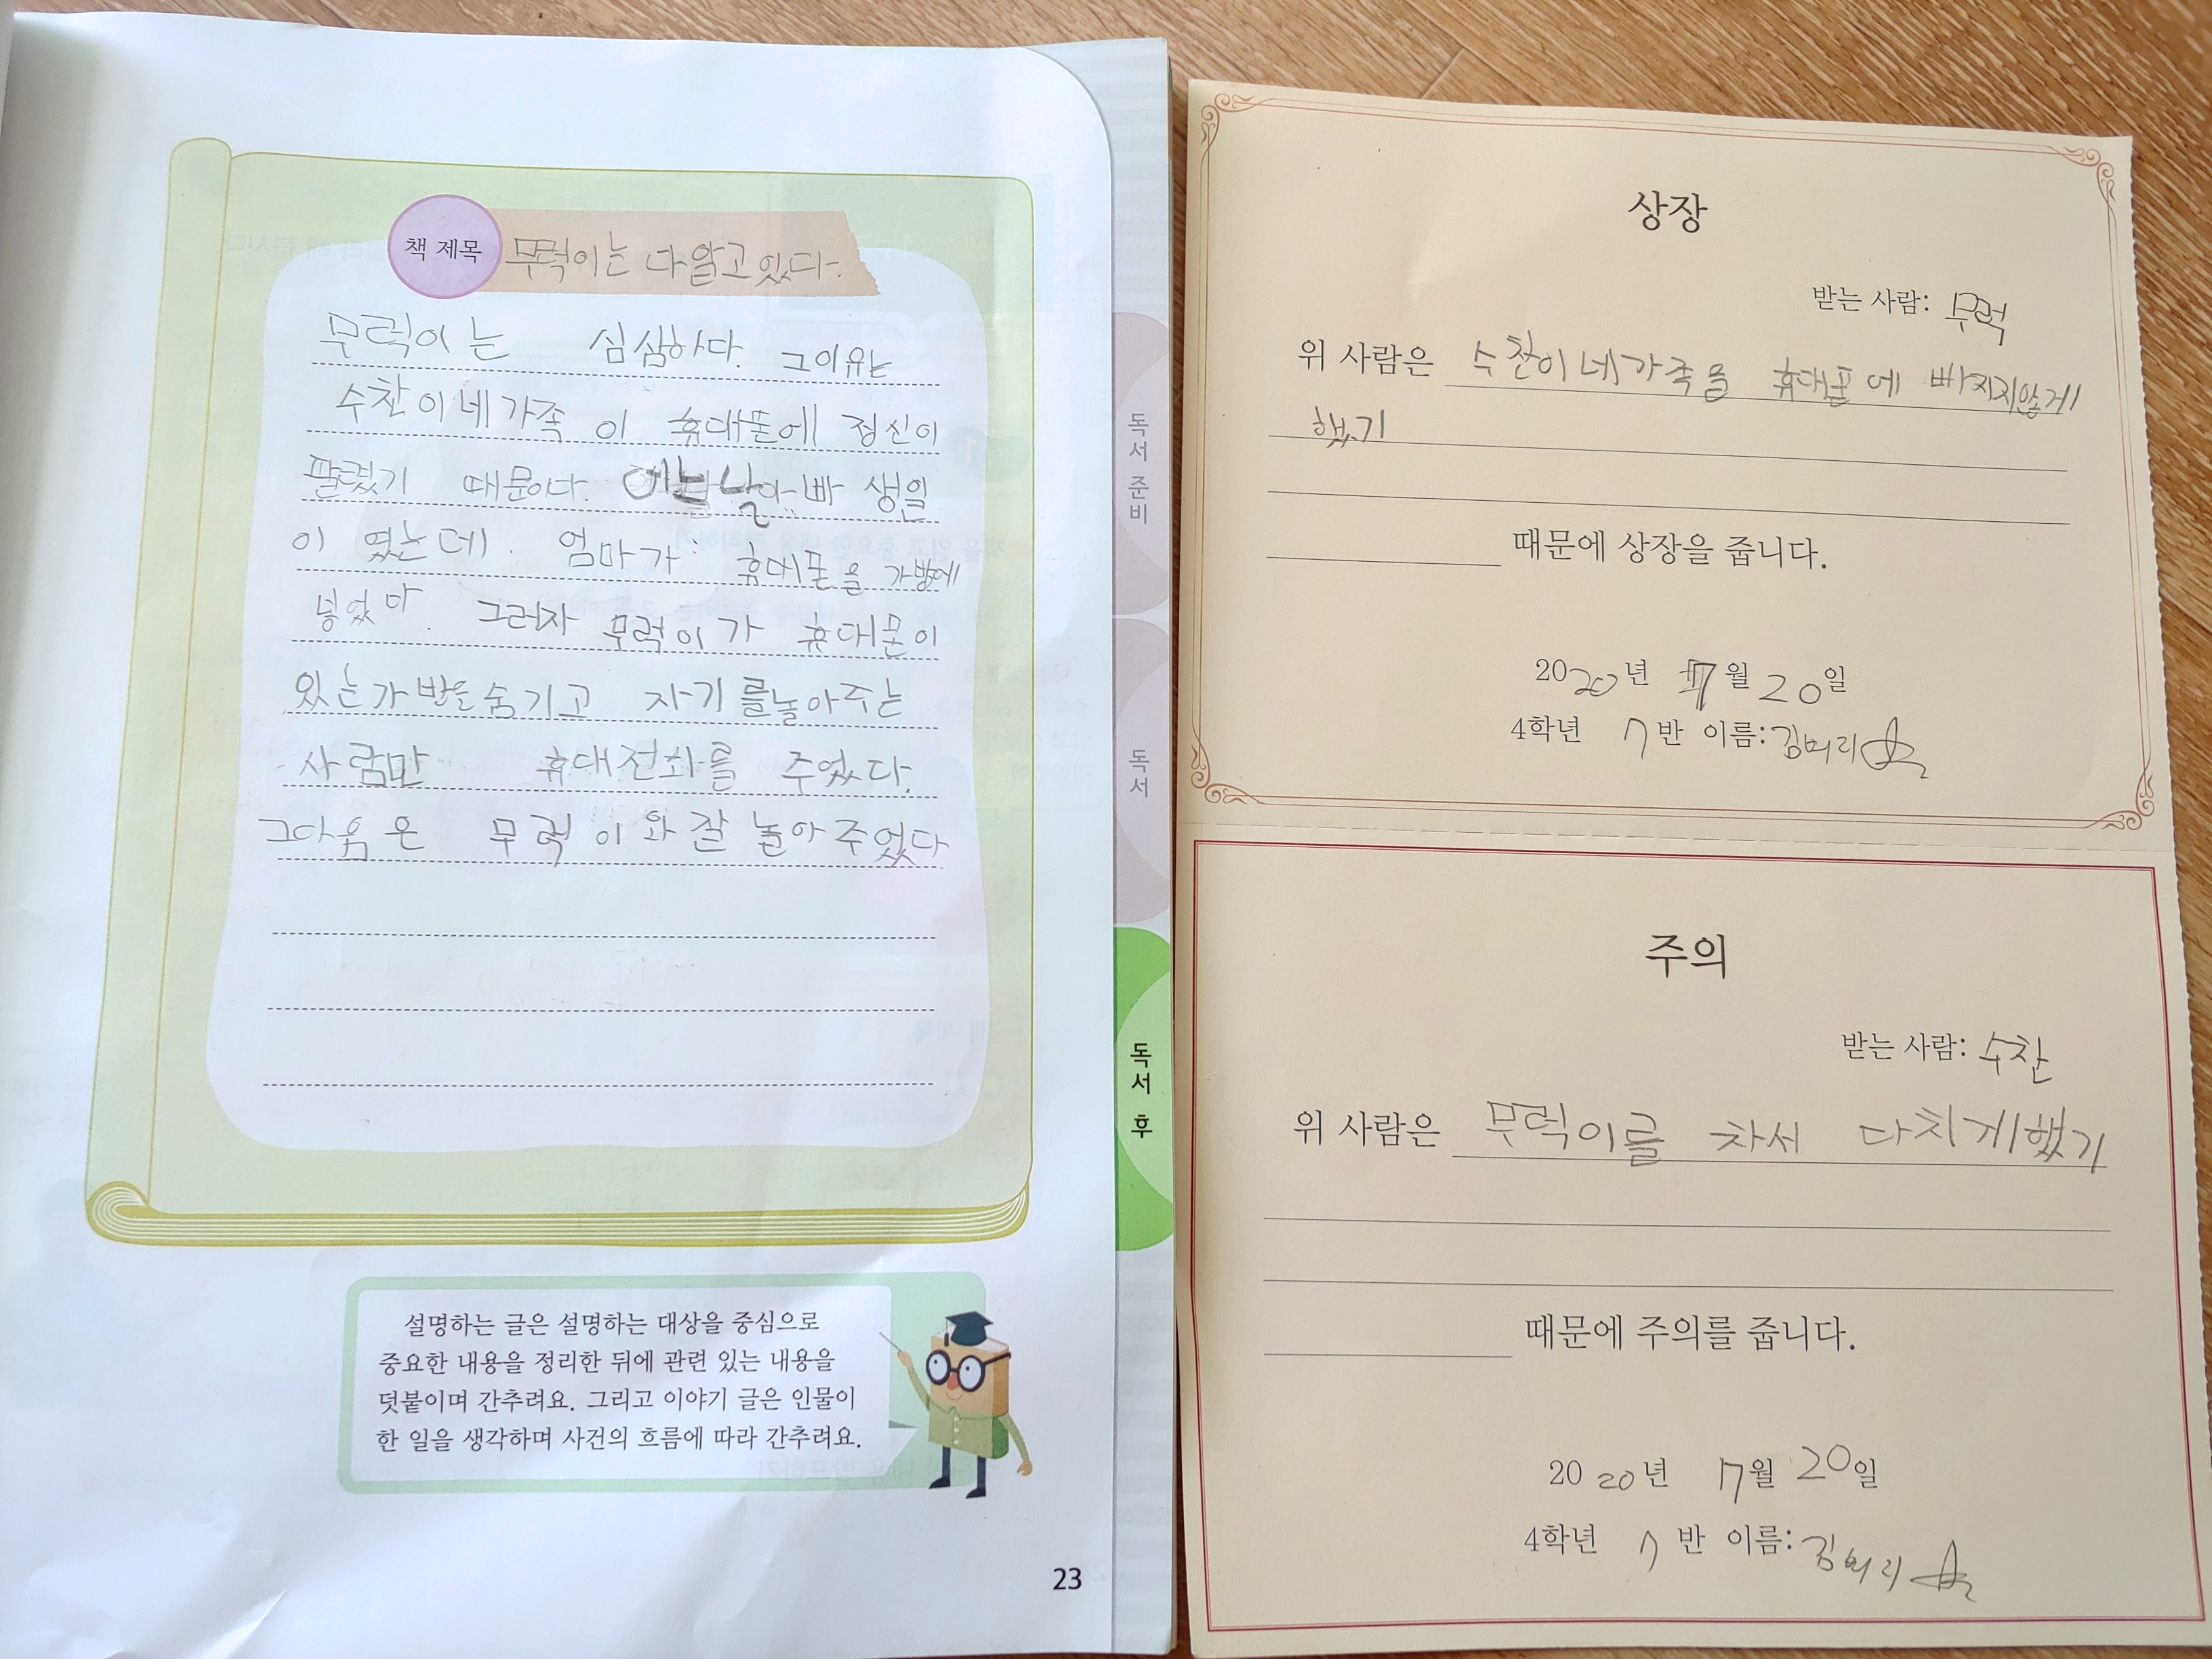 책 제목 무럭이는 다 알고 있다.
무럭이는 심심하다. 그이유는
수찬이네가족이 휴대폰에 정신이
팔렸기 때문이다. 어느날 아빠 생일
이 였는데. 엄마가 휴대폰을 가방에
넣었다. 그러자 무럭이가 휴대폰이
있는가방을 숨기고 자기를놀아주는
사람만 휴대전화를 주었다.
그다음은 무럭이와 잘 놀아주었다
설명하는 글은 설명하는 대상을 중심으로
중요한 내용을 정리한 뒤에 관련 있는 내용을
덧붙이며 간추려요. 그리고 이야기 글은 인물이
한 일을 생각하며 사건의 흐름에 따라 간추려요.
23
독서 준비
독서
독서 후
상장
받는 사람: 무럭
위 사람은 수찬이네가족을 휴대폰에 빠지지않게
했기
때문에 상장을 줍니다.
2020년 7월 20일
4학년 7반 이름:
주의
받는 사람: 수찬
위 사람은 무럭이를 차서 다치게했기
때문에 주의를 줍니다.
2020년 7월 20일
4학년 7반 이름: